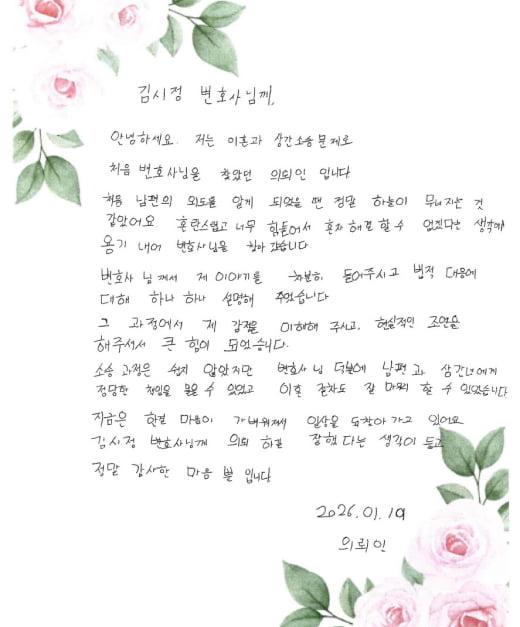 김시정 변호사님께,
안녕하세요. 저는 이혼과 상간소송 문제로
처음 변호사님을 찾았던 의뢰인 입니다
처음 남편의 외도를 알게 되었을 땐 정말 하늘이 무너지는 것
같았어요 혼란스럽고 너무 힘들어서 혼자 해결할 수 없겠다는 생각에
용기 내어 변호사님을 찾아 갔습니다.
변호사 님께서 제 이야기를 차분히 들어주시고 법적 대응에
대해 하나 하나 설명해 주셨습니다
그 과정에서 제 감정을 이해해 주시고, 현실적인 조언을
해주셔서 큰 힘이 되었습니다.
소송 과정은 쉽지 않았지만 변호사님 덕분에 남편과 상간녀에게
정당한 책임을 물을 수 있었고 이혼 절차도 잘 마무리 할 수 있었습니다
지금은 한결 마음이 가벼워져서 일상을 되찾아 가고 있어요
김시정 변호사님께 의뢰 하길 잘했다는 생각이 들고
정말 감사한 마음 뿐 입니다
2026.01.19
의뢰인